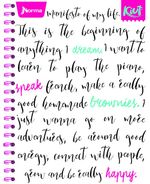 norma
manifesto of my life. Kiut
This is the beginning of
anything I dream. I want to
learn to play the piano,
speak french, make a really
good homemade brownies. I
just wanna go on more
adventures, be around good
energy, connect with people,
grow and be really happy.